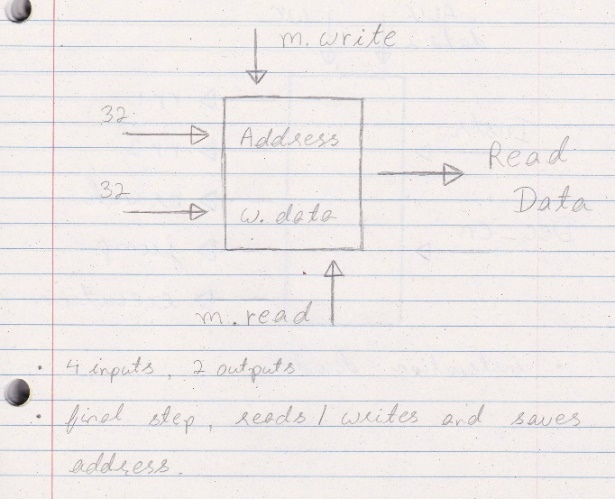 m.write
32
Address
Read
Data
32
w.data
m.read
• 4 inputs, 2 outputs
• final step, reads / writes and saves
address.